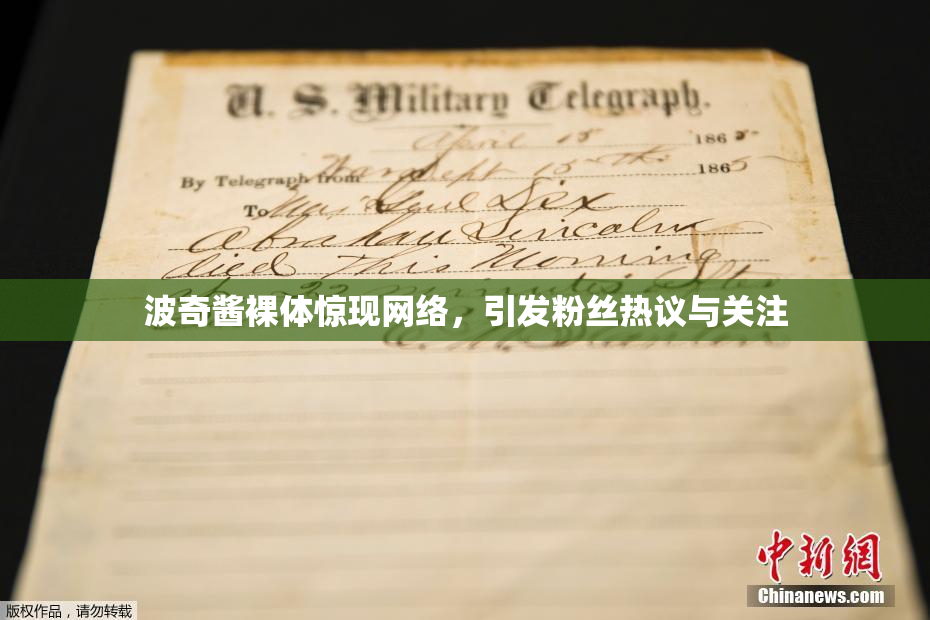 U. S. Military Telegraph.
April 15 1865
By Telegraph from War Dept 15th 1865
To Maj Genl Dix
Abraham Lincoln
died This Morning
at 22 minutes after
波奇酱裸体惊现网络，引发粉丝热议与关注
E. M. Stanton
中新網
Chinanews.com
版权作品，请勿转载